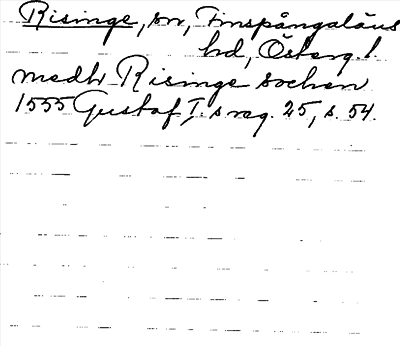 Risinge, sn, Finspångaläns
hd, Österg.l.
medh Risinge sochen
1555 Gustaf I:s reg. 25, s. 54.